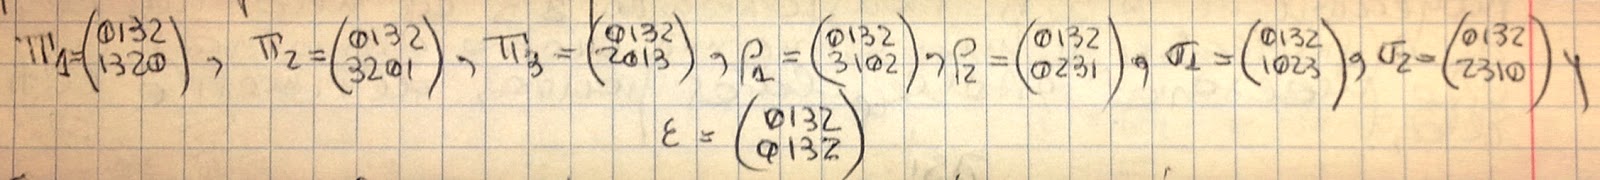 π1 = (0132 / 1320), π2 = (0132 / 3201), π3 = (0132 / 2013), ρ1 = (0132 / 3102), ρ2 = (0132 / 0231), σ1 = (0132 / 1023), σ2 = (0132 / 2310) y
ε = (0132 / 0132)